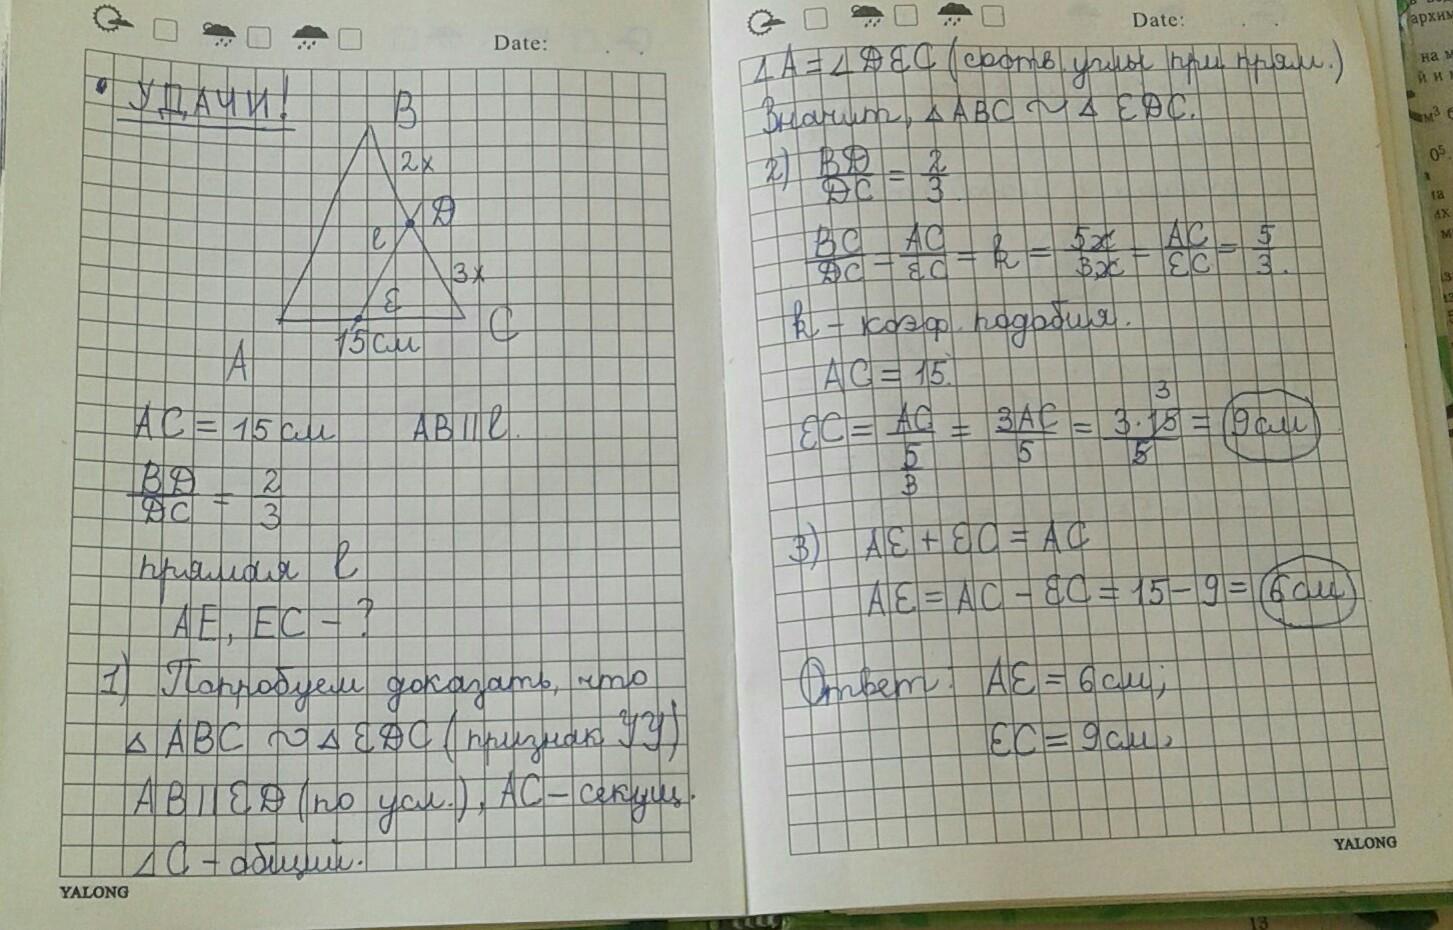 Date: . .
• УДАЧИ!
B
2x
D
l
3x
E
C
15см
A
AC = 15 см AB || l.
BD/DC = 2/3
прямая l
AE, EC - ?
1) Попробуем доказать, что
△ ABC ~ △ EDC (признак УУ)
AB || ED (по усл.), AC - секущ.
∠C - общий.
YALONG
Date: . .
∠A = ∠DEC (соотв. углы при прям.)
Значит, △ ABC ~ △ EDC.
2) BD/DC = 2/3.
BC/DC = AC/EC = k = 5x/3x = AC/EC = 5/3.
k - коэф. подобия.
AC = 15.
EC = AC/(5/3) = 3AC/5 = 3·15/5 = 9 см
3
3) AE + EC = AC
AE = AC - EC = 15 - 9 = 6 см
Ответ: AE = 6 см;
EC = 9 см.
YALONG
архим
на м
й и
м³
0⁵
13